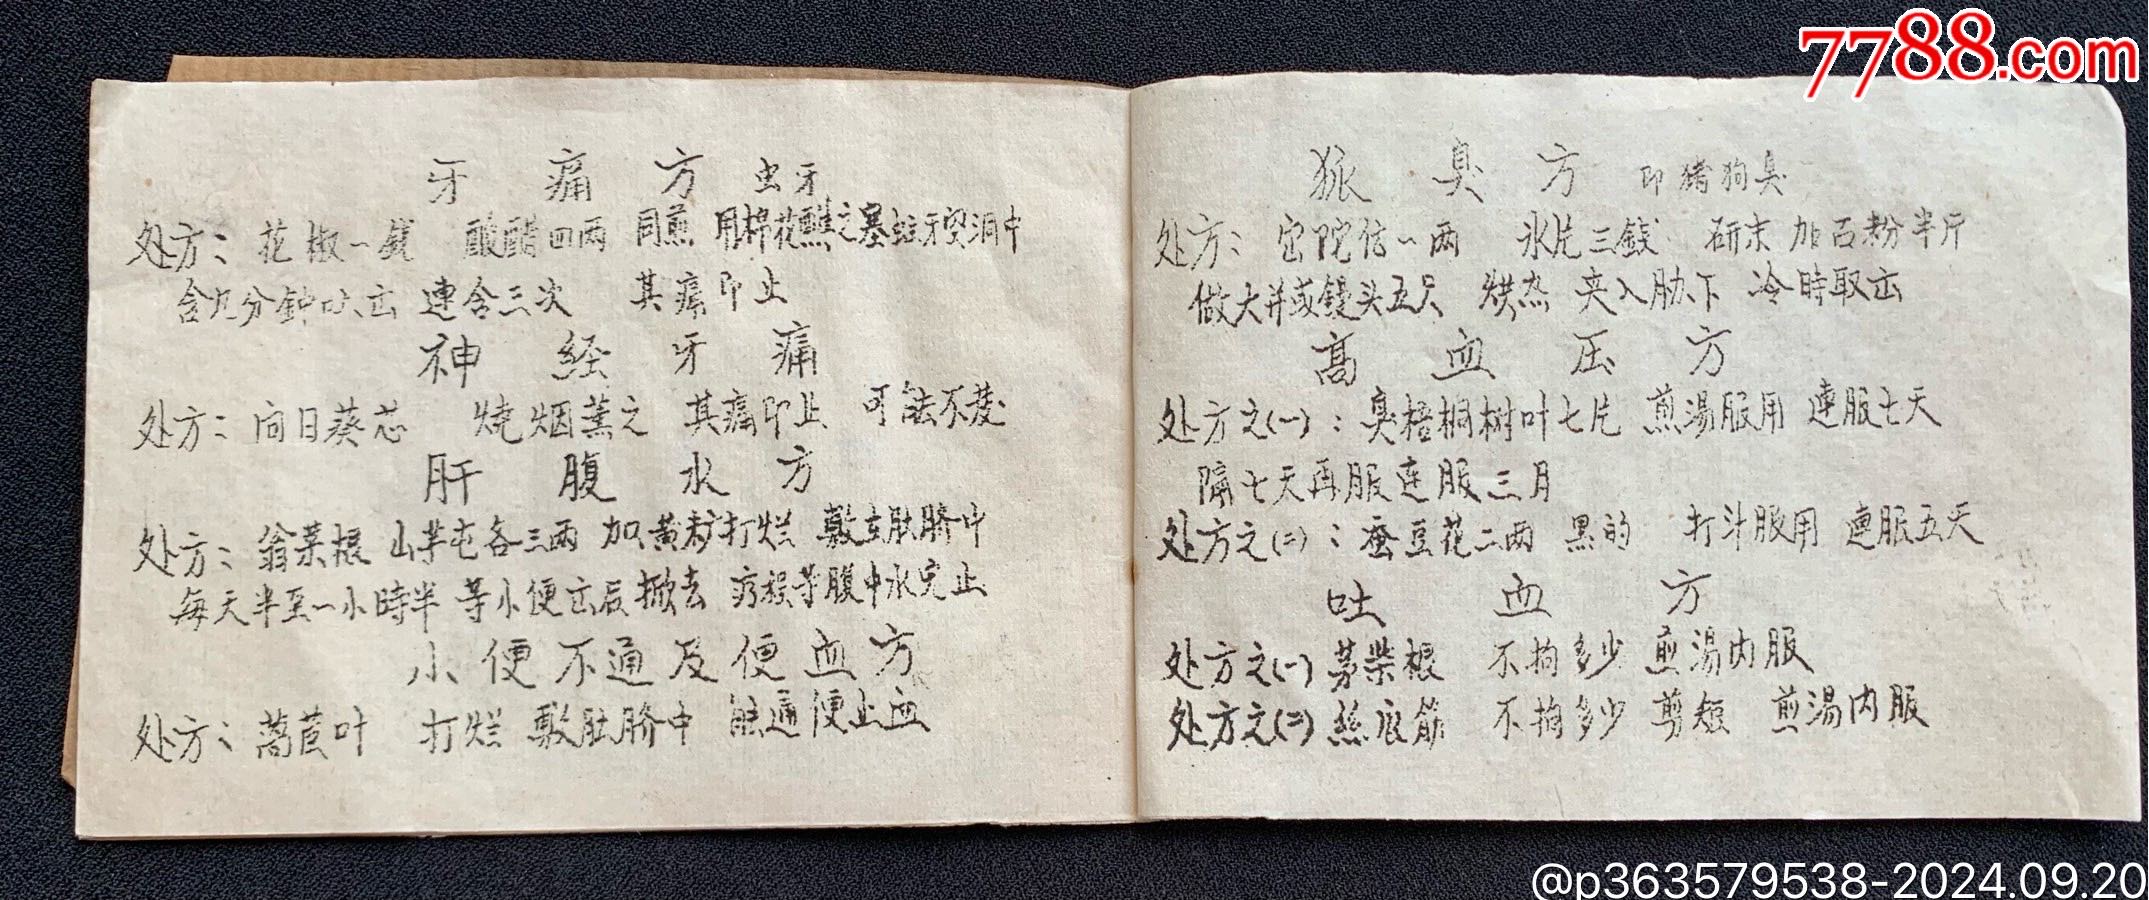 牙痛方 虫牙
处方：花椒一钱 酸醋四两 同煎 用棉花蘸之塞蛀牙空洞中
含九分鈡吐出 連含三次 其痛即止
神经牙痛
处方：向日葵芯 烧烟薰之 其痛即止 可能不发
肝腹水方
处方：菜根 山芋 各三两 加黄 打烂 敷在肚脐中
每天半至一小時半 等小便出后掀去 疗程等腹中水完止
小便不通及便血方
处方：萵苣叶 打烂 敷肚脐中 能通便止血
狐臭方 即猪狗臭
处方：信一两 氷片三钱 研末 加石粉半斤
做大并或镘头五只 烘热 夹入肋下 冷時取出
高血压方
处方之(一)：臭梧桐树叶七片 煎湯服用 連服七天
隔七天再服连服三月
处方之(二)：蚕豆花二两 黑的 打汁服用 連服五天
吐血方
处方之(一) 茅柴根 不拘多少 煎湯内服
处方之(二) 絲瓜筋 不拘多少 剪短 煎湯内服
7788.com
@p363579538-2024.09.20